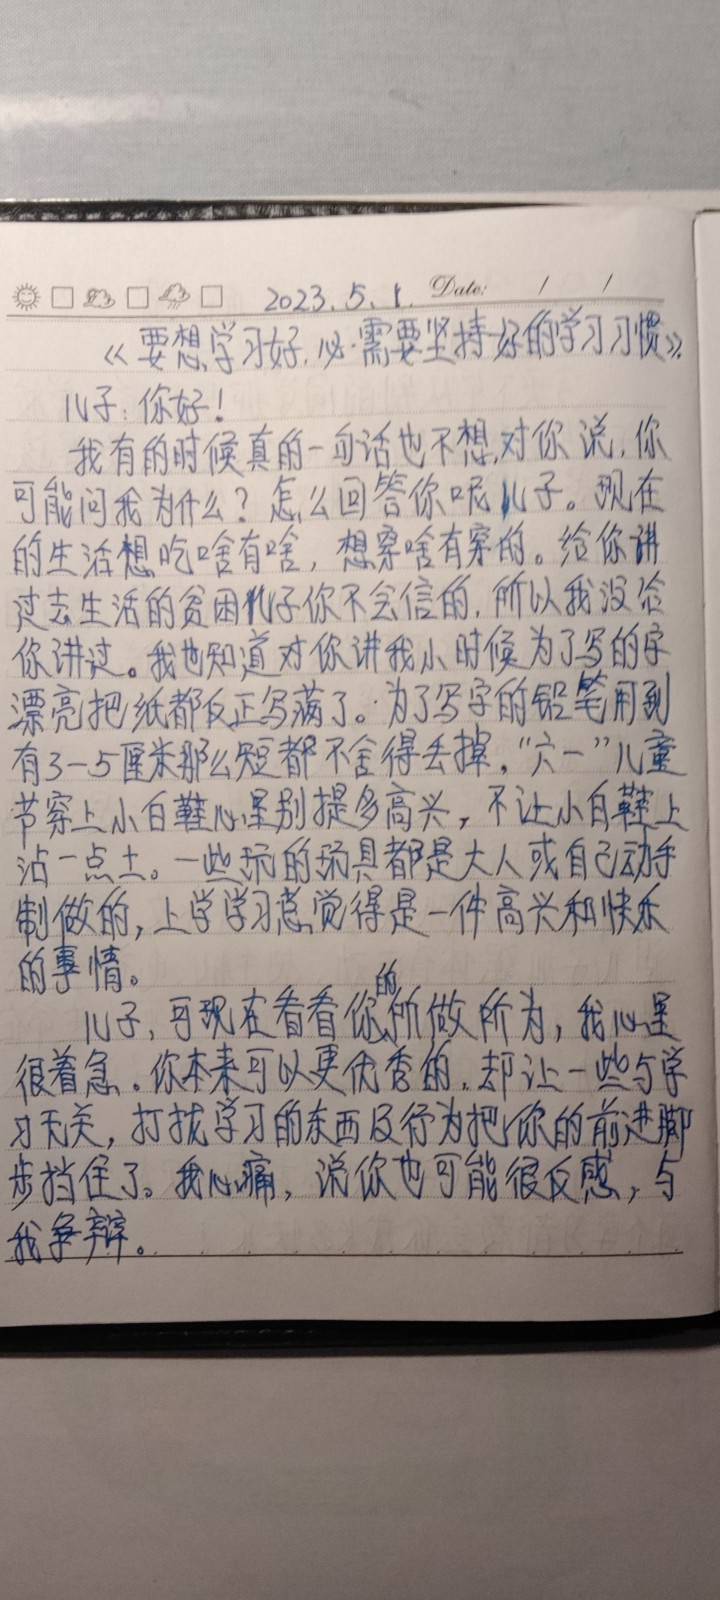 2023.5.1. Date: / /
《要想学习好,必需要坚持好的学习习惯》
儿子:你好!
我有的时候真的一句话也不想对你说,你
可能问我为什么?怎么回答你呢儿子。现在
的生活想吃啥有啥,想穿啥有穿的。给你讲
过去生活的贫困儿子你不会信的,所以我没给
你讲过。我也知道对你讲我小时候为了写的字
漂亮把纸都反正写满了。为了写字的铅笔用到
有3-5厘米那么短都不舍得丢掉。“六一”儿童
节穿上小白鞋心里别提多高兴,不让小白鞋上
沾一点土。一些玩的玩具都是大人或自己动手
制做的,上学学习总觉得是一件高兴和快乐
的事情。
儿子,可现在看看你的所做所为,我心里
很着急。你本来可以更优秀的,却让一些与学
习无关,打扰学习的东西及行为把你的前进脚
步挡住了。我心痛,说你也可能很反感,与
我争辩。